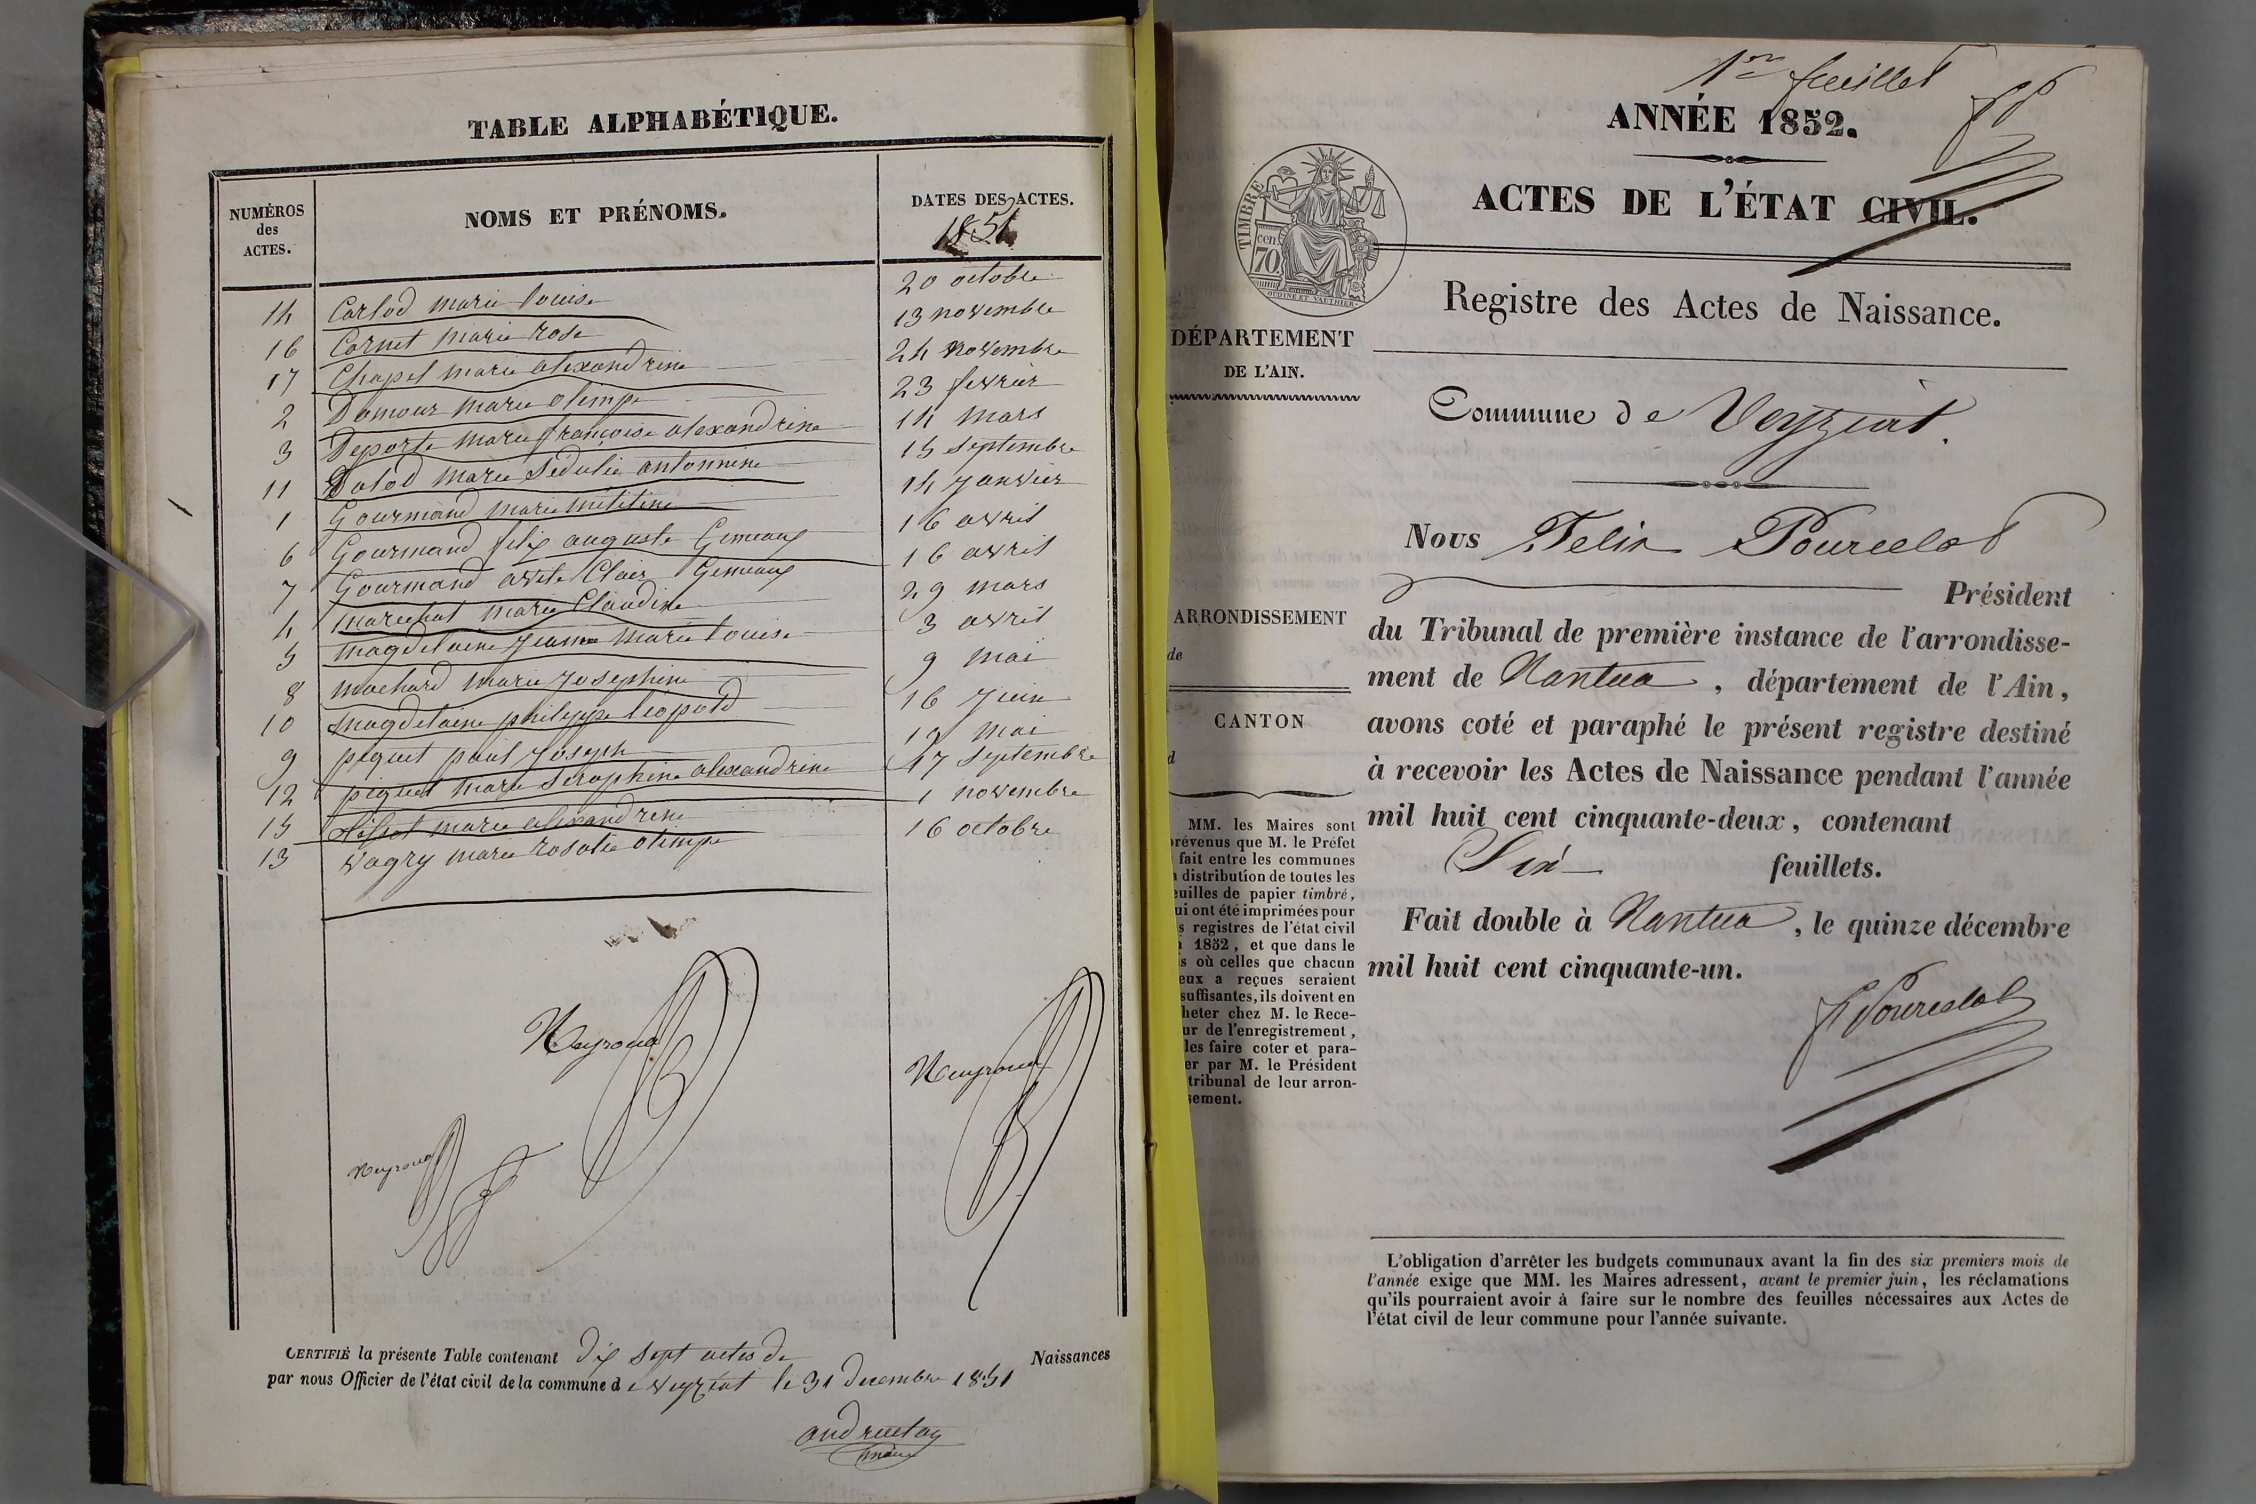 TABLE ALPHABÉTIQUE.
NUMÉROS
des
ACTES.
NOMS ET PRÉNOMS.
DATES DES ACTES.
1851
14 Carlod marie louise 20 octobre
16 Cornet marie rose 13 novembre
17 Chapel marie alexandrine 24 novembre
2 Damour marie olimpe 23 fevrier
3 Deporte marie françoise alexandrine 14 mars
11 Dalod marie Sédulie antonnine 15 septembre
1 Gourmand marie 14 janvier
6 Gourmand felix auguste Gemeaux 16 avril
7 Gourmand Clair Gemeaux 16 avril
4 marechat marie Claudine 29 mars
5 magdelaine jeanne marie louise 3 avril
8 machard marie josephine 9 mai
10 magdelaine philippe léopold 16 juin
9 piquet paul joseph 19 mai
12 piquet marie seraphine alexandrine 17 septembre
15 marie alexandrine 1 novembre
13 vagry marie rosalie olimpe 16 octobre
Neyroud
Neyroud
Neyroud
CERTIFIÉ la présente Table contenant dix sept actes de Naissances
par nous Officier de l'état civil de la commune de veyziat le 31 decembre 1851
andruetay
maire
1er feuillet
ANNÉE 1852.
ACTES DE L'ÉTAT CIVIL.
TIMBRE
70 cen
OUDINE ET VAUTHIER
Registre des Actes de Naissance.
DÉPARTEMENT
DE L'AIN.
Commune de Veyziat.
Nous Felix Pourcelot
Président
du Tribunal de première instance de l'arrondisse-
ment de Nantua, département de l'Ain,
avons coté et paraphé le présent registre destiné
à recevoir les Actes de Naissance pendant l'année
mil huit cent cinquante-deux, contenant
Six feuillets.
Fait double à Nantua, le quinze décembre
mil huit cent cinquante-un.
F Pourcelot
ARRONDISSEMENT
de
CANTON
d
MM. les Maires sont
prévenus que M. le Préfet
fait entre les communes
distribution de toutes les
feuilles de papier timbré,
qui ont été imprimées pour
s registres de l'état civil
1852, et que dans le
s où celles que chacun
eux a reçues seraient
suffisantes, ils doivent en
heter chez M. le Rece-
ur de l'enregistrement,
les faire coter et para-
er par M. le Président
tribunal de leur arron-
sement.
L'obligation d'arrêter les budgets communaux avant la fin des six premiers mois de
l'année exige que MM. les Maires adressent, avant le premier juin, les réclamations
qu'ils pourraient avoir à faire sur le nombre des feuilles nécessaires aux Actes de
l'état civil de leur commune pour l'année suivante.